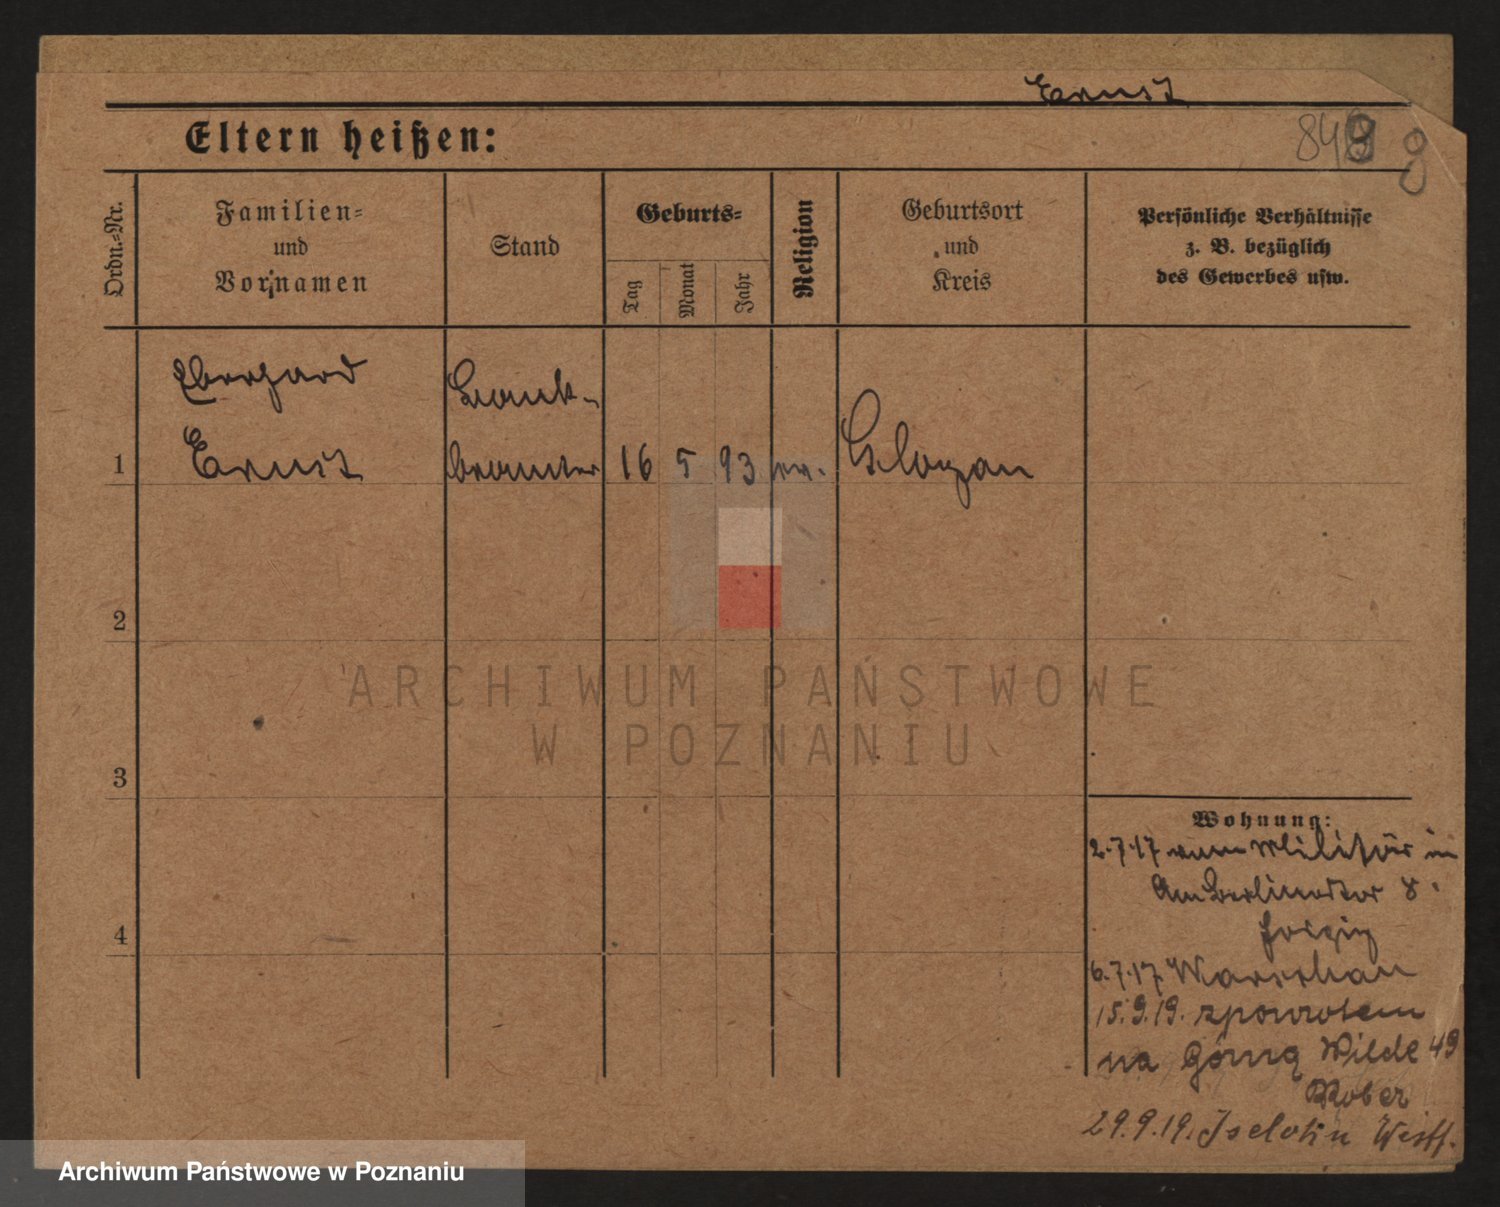 Ernst
Eltern heißen:
8
Ordn.-Nr.
Familien-
und
Vornamen
Stand
Geburts-
Tag
Monat
Jahr
Religion
Geburtsort
und
Kreis
Persönliche Verhältnisse
z. B. bezüglich
des Gewerbes usw.
Eberhard
Ernst
Bank-
beamter
1
16
5
93
ev.
Glogau
2
3
4
Wohnung:
2.7.17 vom Militär in
Am Berliner Tor 8.
6.7.17 Warschau
15.9.19. zpowrotem
na Górną Wilde 49
29.9.19. Iserlohn Westf.
ARCHIWUM PAŃSTWOWE
W POZNANIU
Archiwum Państwowe w Poznaniu